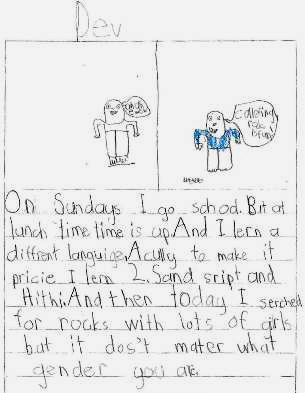 Dev
Collecting
On Sundays I go school. But at
lunch time time is up. And I lern a
diffrent languige. Acully to make it
pricie I lern 2. Sand sript and
Hithi. And then today I serched
for rocks with lots of girls
but it dos't mater what
gender you are.